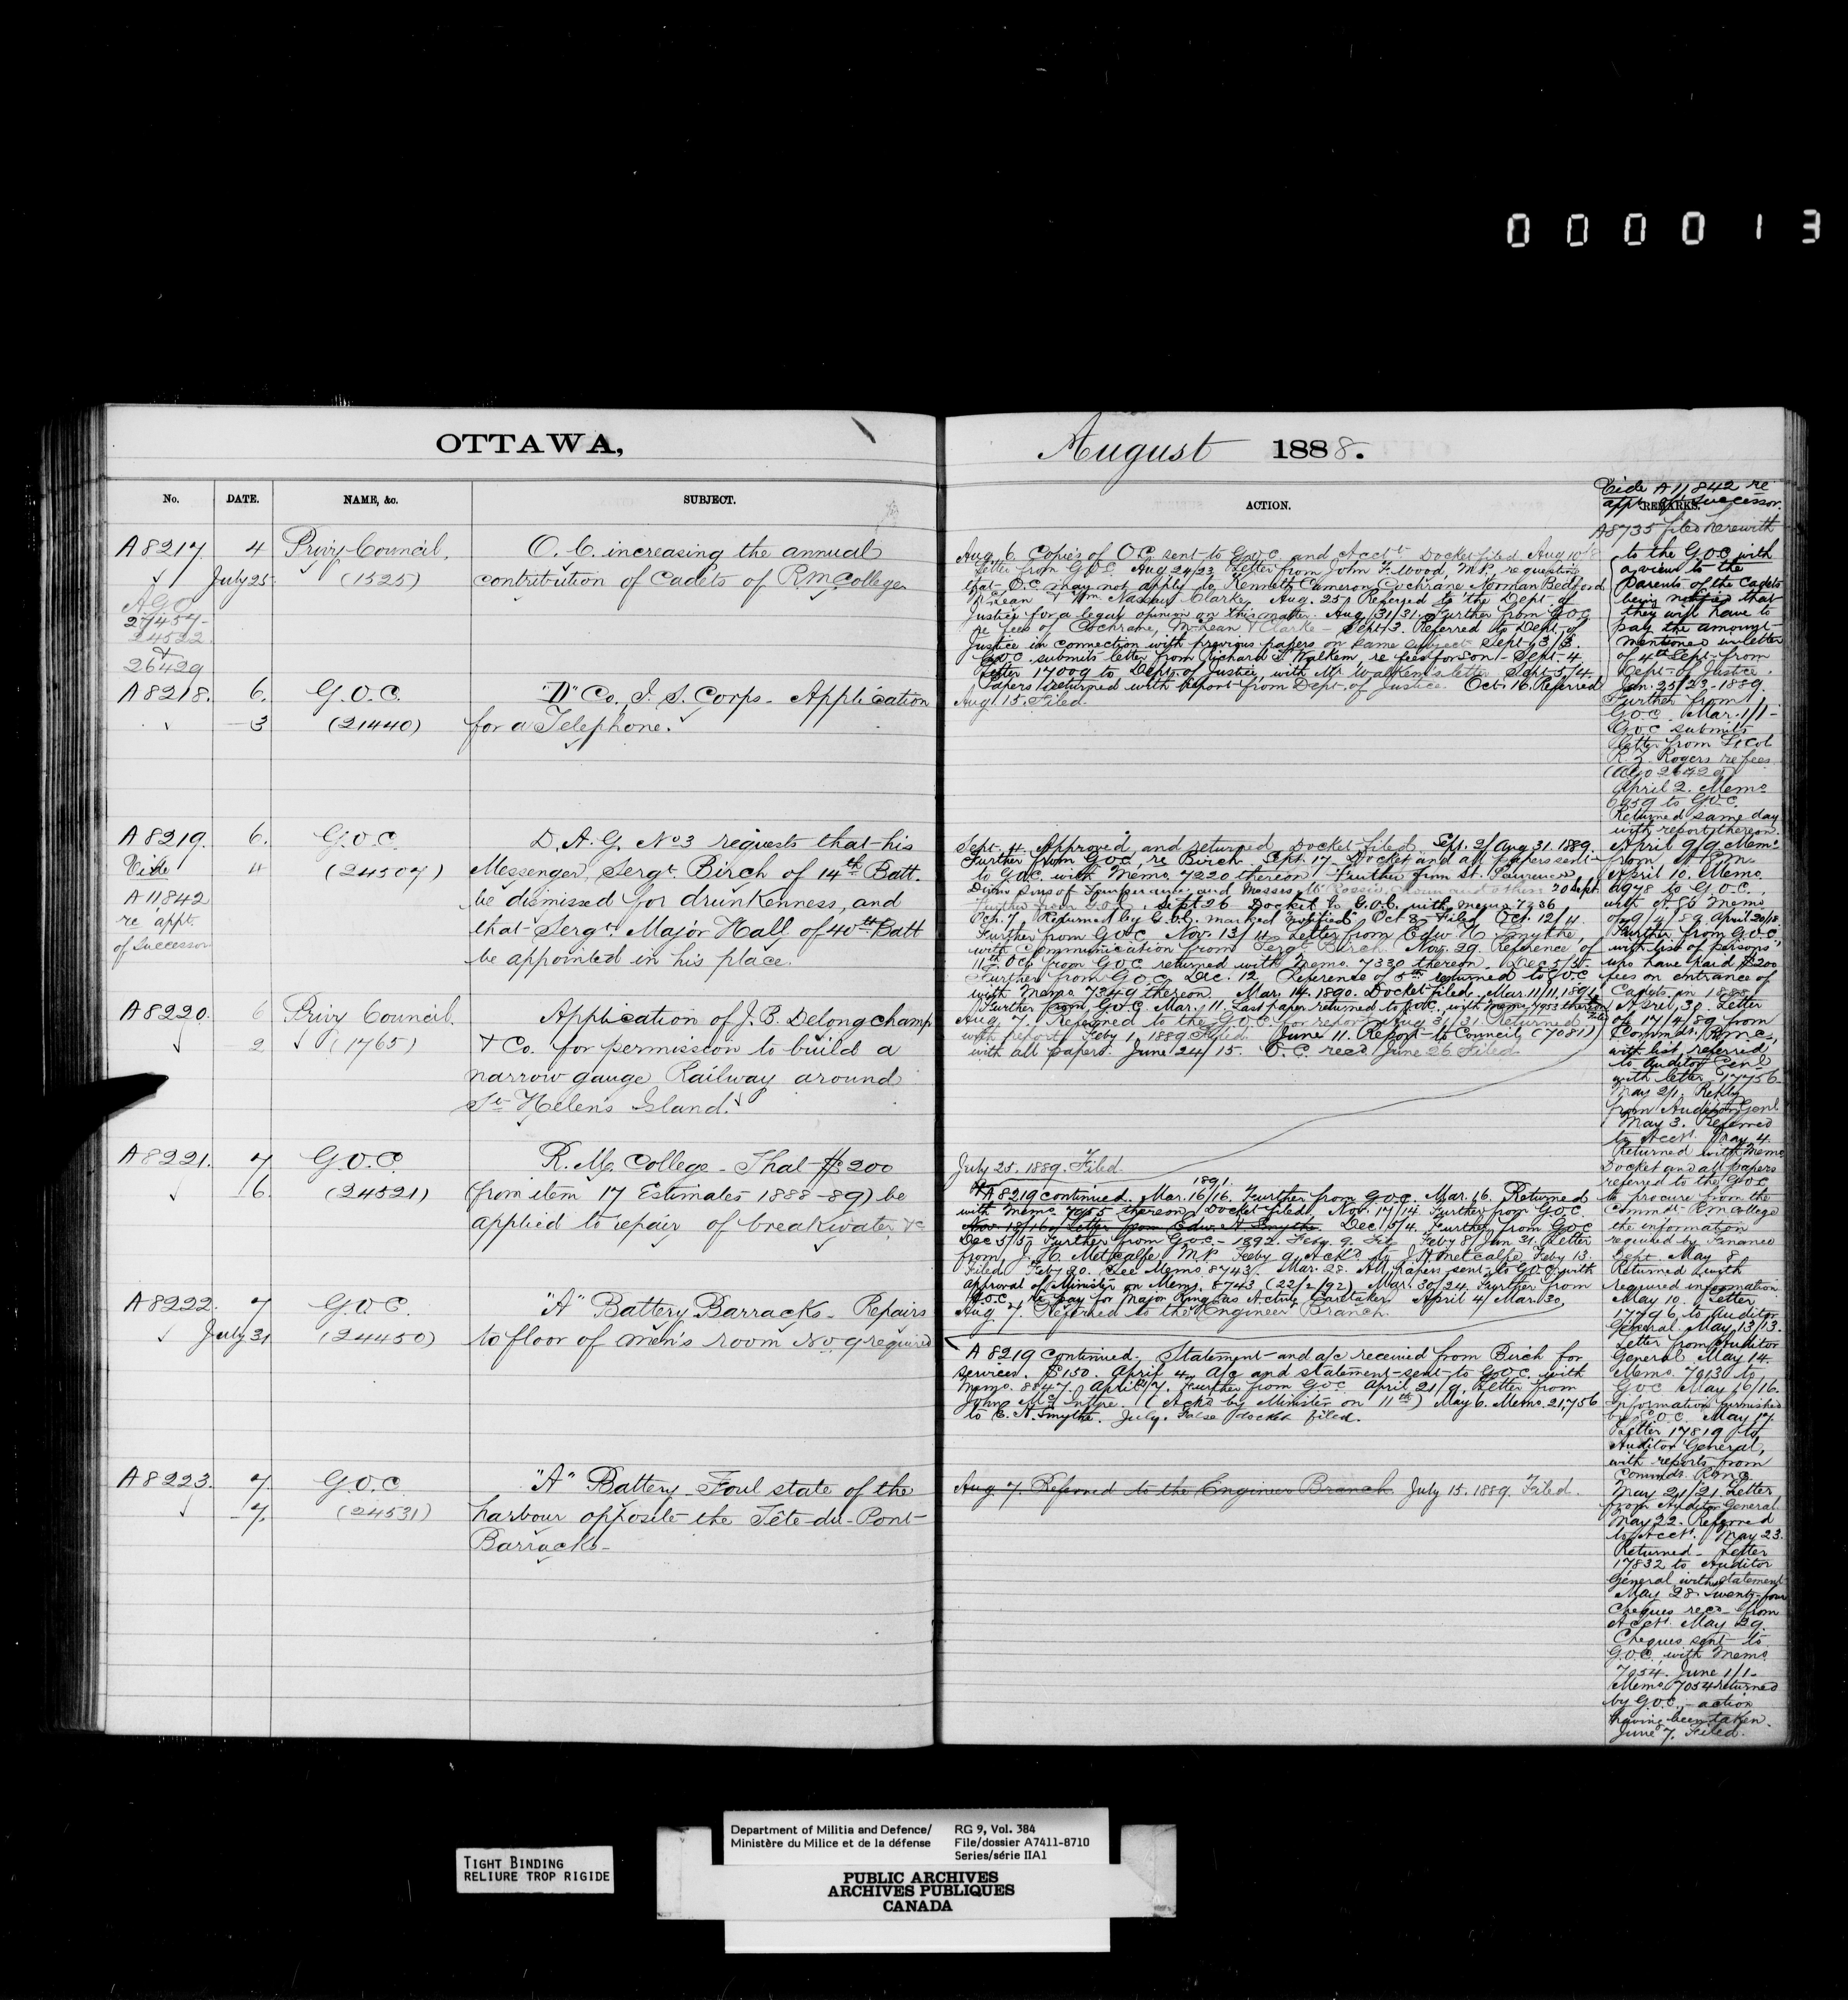 000013
OTTAWA,
August 1888.
No.
DATE.
NAME, &c.
SUBJECT.
ACTION.
REMARKS.
Vide A11,842 re
appt of Successor.
A8735 filed herewith
A8217
4
Privy Council.
O.C. increasing the annual
July 25
(1525)
contribution of Cadets of R.M. College
AGO
27457
24522
&
26429
Aug. 6. Copies of O.C. sent to G.O.C. and Acct. Docket filed Aug 10/8
Letter from G.O.C. Aug 24/23 Letter from John F. Wood, M.P. requesting
that O.C. may not apply to Kenneth Cameron Cochrane Norman Bedford
McLean & Wm Nassau Clarke, Aug. 25. Referred to the Dept. of
Justice for a legal opinion on this matter. Aug 31/31. Further from G.O.C.
re fees of Cochrane, McLean & Clarke - Sept 3. Referred to Dept. of
Justice in connection with previous papers on same subject Sept 3/3.
G.O.C. submits letter from Richard I Walkem, re fees for son - Sept. 4
Letter 17009 to Dept. of Justice, with Mr Walkem's letter. Sept. 5/4.
Papers returned with report from Dept. of Justice. Oct. 16. Referred
to the G.O.C. with
a view to the
Parents of the Cadets
being notified that
they will have to
pay the amount
mentioned in letter
of 4th Sept. from
Dept. of Justice.
Jan. 25/23 - 1889.
Further from
G.O.C. Mar. 1/1 -
G.O.C. submits
letter from Lt Col
R. Z. Rogers re fees
(AGO 26429)
April 2. Memo
6959 to G.O.C.
Returned same day
with report thereon.
April 9/9 Memo
from
April 10. Memo
6978 to G.O.C.
with
of 9/4/89 April 20/18
Further from G.O.C.
with list of persons
who have paid $200
fees on entrance of
Cadets in 1888
April 30. Letter
of 17/4/89 from
Commdt. R.M.C.,
with list, referred
to Auditor Genl
with letter 17756
May 2/1. Reply
from Auditor Genl
May 3. Referred
to Acct. May 4
Returned with memo
Docket and all papers
referred to the G.O.C.
to procure from the
Commdt. R.M. College
the information
required by Finance
Dept. May 8
Returned with
required information
May 10. Letter
17796 to Auditor
General May 13/13.
Letter from Auditor
General May 14.
Memo. 7013 to
G.O.C. May 16/16.
Information furnished
by G.O.C. May 17
Letter 17819 to
Auditor General,
with reports from
Commdt. R.M.C.
May 21/21 Letter
from Auditor General
May 22. Referred
to Acct. May 23.
Returned - Letter
17832 to Auditor
General with statement
May 28 - Twenty-four
Cheques recd. from
Acct. May 29.
Cheques sent to
G.O.C. with Memo
7054. June 1/1 -
Memo 7054 returned
by G.O.C. - action
having been taken.
June 7. Filed.
A8218.
6.
G.O.C.
"D" Co., I. S. Corps - Application
3
(21440)
for a Telephone.
Aug. 15. Filed.
A8219.
6.
G.O.C.
D.A.G. No 3 requests that his
Vide
4
(24507)
Messenger, Sergt Birch of 14th Batt.
A11842
be dismissed for drunkenness, and
re appt.
that Sergt. Major Hall of 40th Batt
of Successor
be appointed in his place.
Sept. 4. Approved and returned Docket filed. Sept. 2/Aug 31. 1889.
Further from G.O.C. re Birch. Sept. 17 - Docket and all papers sent
to G.O.C. with Memo 7220 thereon. Further from St. Lawrence
Divn Sons of Temperance and Messrs 20 Sept
Further from G.O.C. Sept 26 Docket to G.O.C. with memo 7236
Oct. 7. Returned by G.O.C. marked "notified" Oct 8. Filed Oct. 12/11.
Further from G.O.C. Nov. 13/11. Letter from Edw. H. Smythe,
with communication from Sergt. Birch. Nov. 29. Reference of
11th Oct. from G.O.C. returned with Memo. 7330 thereon. Dec 5/5.
Further from G.O.C. Dec. 12 Reference of 5th returned to G.O.C.
with Memo 7349 thereon. Mar. 14. 1890. Docket filed. Mar. 11/11. 1891.
Further from G.O.C. Mar. 11. Last paper returned to G.O.C. with memo 7953 thereon
A8220.
6
Privy Council.
Application of J. B. Delongchamp
2
(1765)
& Co. for permission to build a
narrow gauge Railway around
St. Helen's Island.
Aug. 7. Referred to the G.O.C. for report. Aug 31/31. Returned
with report. Feby 1. 1889. Filed. June 11. Report to Council (7081)
with all papers. June 24/15. O.C. recd. June 26 Filed
A8221.
7
G.O.C.
R.M. College - That $200
6.
(24521)
(from item 17 Estimates 1888-89) be
applied to repair of breakwater &c
July 25. 1889. Filed.
1891.
A8219 continued. Mar. 16/16. Further from G.O.C. Mar. 16. Returned
with memo 7955 thereon. Docket filed. Nov. 17/14. Further from G.O.C.
Nov. 18/16. Letter from Edw. H. Smythe. Dec. 5/4. Further from G.O.C.
Dec 5/5. Further from G.O.C. - 1892. Feby. 9. File Feby 8/Jan 31. Letter
from J. H. Metcalfe M.P. Feby 9. Ackd. to J. H. Metcalfe Feby 13.
Filed Feby 20. See Memo 8743. Mar. 28. All papers sent to G.O.C. with
approval of Minister on Memo. 8743 (22/2/92) Mar. 30/24. Further from
G.O.C. re pay for Major King as Acting Caretaker. April 4/Mar. 30,
A8222.
7
G.O.C.
"A" Battery Barracks - Repairs
July 31
(24450)
to floor of men's room No. 9 required
Aug. 7. Referred to the Engineer Branch.
A8219 continued. Statement and a/c received from Birch for
services. $150. April 4. A/c and statement sent to G.O.C. with
Memo. 8847. April 7/7. Further from G.O.C. April 21/9. Letter from
John McIntyre. (Ackd by Minister on 11th) May 6. Memo. 21,756
to E. H. Smythe. July. False docket filed.
A8223.
7.
G.O.C.
"A" Battery - Foul state of the
7.
(24531)
harbour opposite the Tête-du-Pont
Barracks -
Aug. 7. Referred to the Engineer Branch. July 15. 1889. Filed.
TIGHT BINDING
RELIURE TROP RIGIDE
Department of Militia and Defence/
Ministère du Milice et de la défense
RG 9, Vol. 384
File/dossier A7411-8710
Series/série IIA1
PUBLIC ARCHIVES
ARCHIVES PUBLIQUES
CANADA